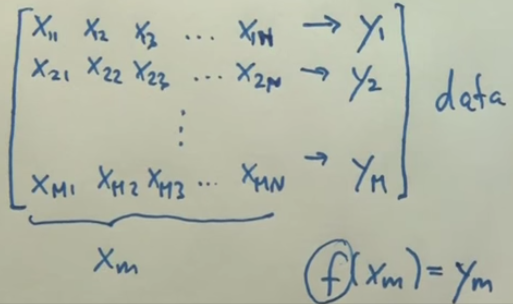 [ x₁₁ x₂ x₃ ... x₁N → y₁ ]
x₂₁ x₂₂ x₂₃ ... x₂N → y₂ data
⋮
xM₁ xM₂ xM₃ ... xMN → yM
xm
f(xm) = ym